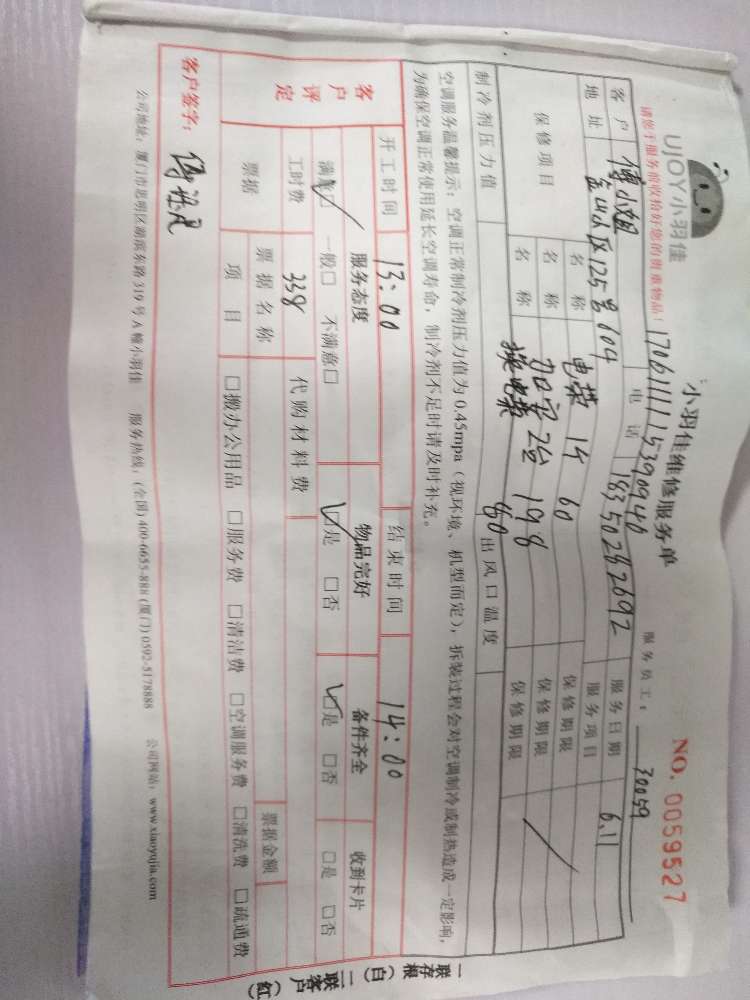 UJOY小羽佳
小羽佳维修服务单
NO. 0059527
请您于服务前收拾好您的贵重物品!
1706111115390940
服务员工: 30059
客户 傅小姐 电话 18350282692 服务日期 6.11
地址 金山小区125号604 服务项目
保修项目 名称 电容 1个 60 保修期限
名称 加氟 2台 198 保修期限
名称 换电容 80 保修期限
制冷剂压力值 出风口温度
空调服务温馨提示:空调正常制冷剂压力值为0.45mpa(视环境、机型而定),拆装过程会对空调制冷或制热造成一定影响,
为确保空调正常使用延长空调寿命,制冷剂不足时请及时补充。
开工时间 13:00 结束时间 14:00
客户评定 服务态度 物品完好 备件齐全 收到卡片
满意 一般□ 不满意□ □是 □否 □是 □否 □是 □否
工时费 338 代购材料费
票据 票据名称 票据金额
项目 □搬办公用品 □服务费 □清洁费 □空调服务费 □清洗费 □疏通费
客户签字:
公司地址:厦门市思明区湖滨东路319号A幢小羽佳 服务热线:(全国)400-6655-888 (厦门)0592-5178888 公司网站:www.xiaoyujia.com
一联存根(白) 二联客户(红)